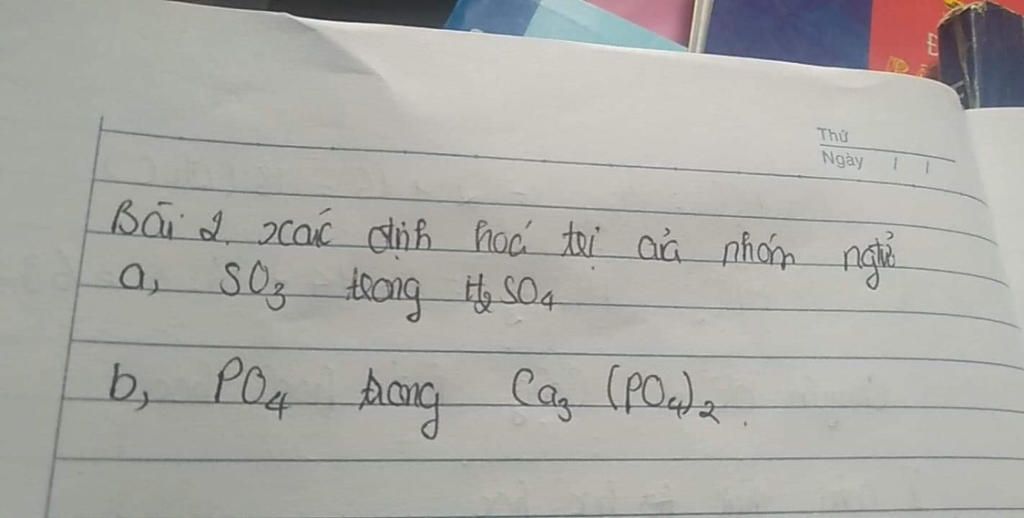 Thứ
Ngày / /
Bài 2. xác định hoá trị của nhóm ngtử
a, SO₃ trong H₂SO₄
b, PO₄ trong Ca₃ (PO₄)₂.